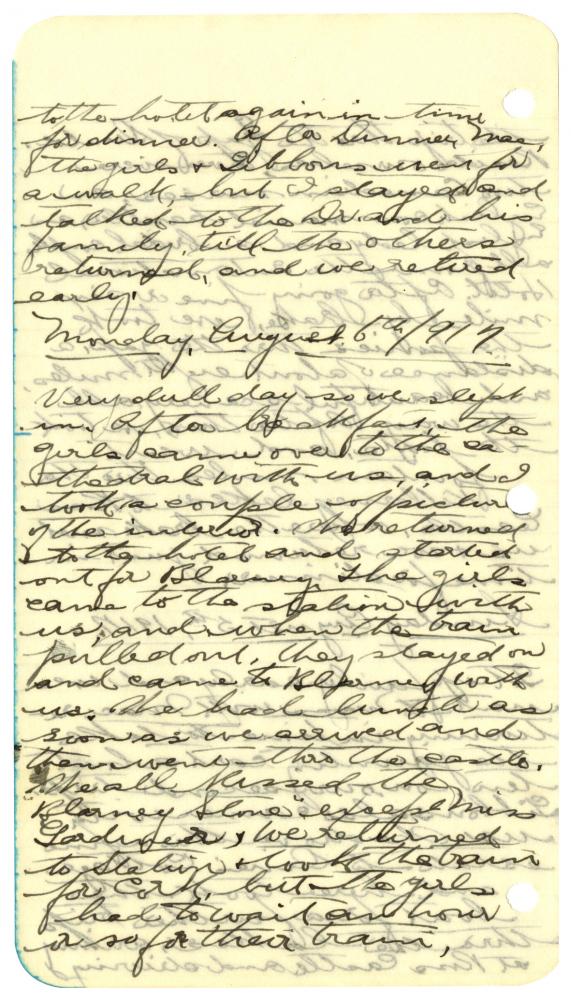 to the hotel again in time
for dinner. After Dinner, Mac,
the girls & Gibbons went for
a walk, but I stayed and
talked to the Dr. and his
family, till the others
returned, and we retired
early.
Monday, August 6th/917
Very dull day so we slept
in. After breakfast, the
girls came over to the ca
thedral with us, and I
took a couple of picture
of the interior. We returned
to the hotel and started
out for Blarney. The girls
came to the station with
us, and when the train
pulled out, they stayed on
and came to Blarney with
us. We had lunch as
soon as we arrived and
then went thro the castle.
We all kissed the
"Blarney Stone" except Miss
Gardiner, We returned
to Station & took the train
for Cork, but the girls
had to wait an hour
or so for their train,